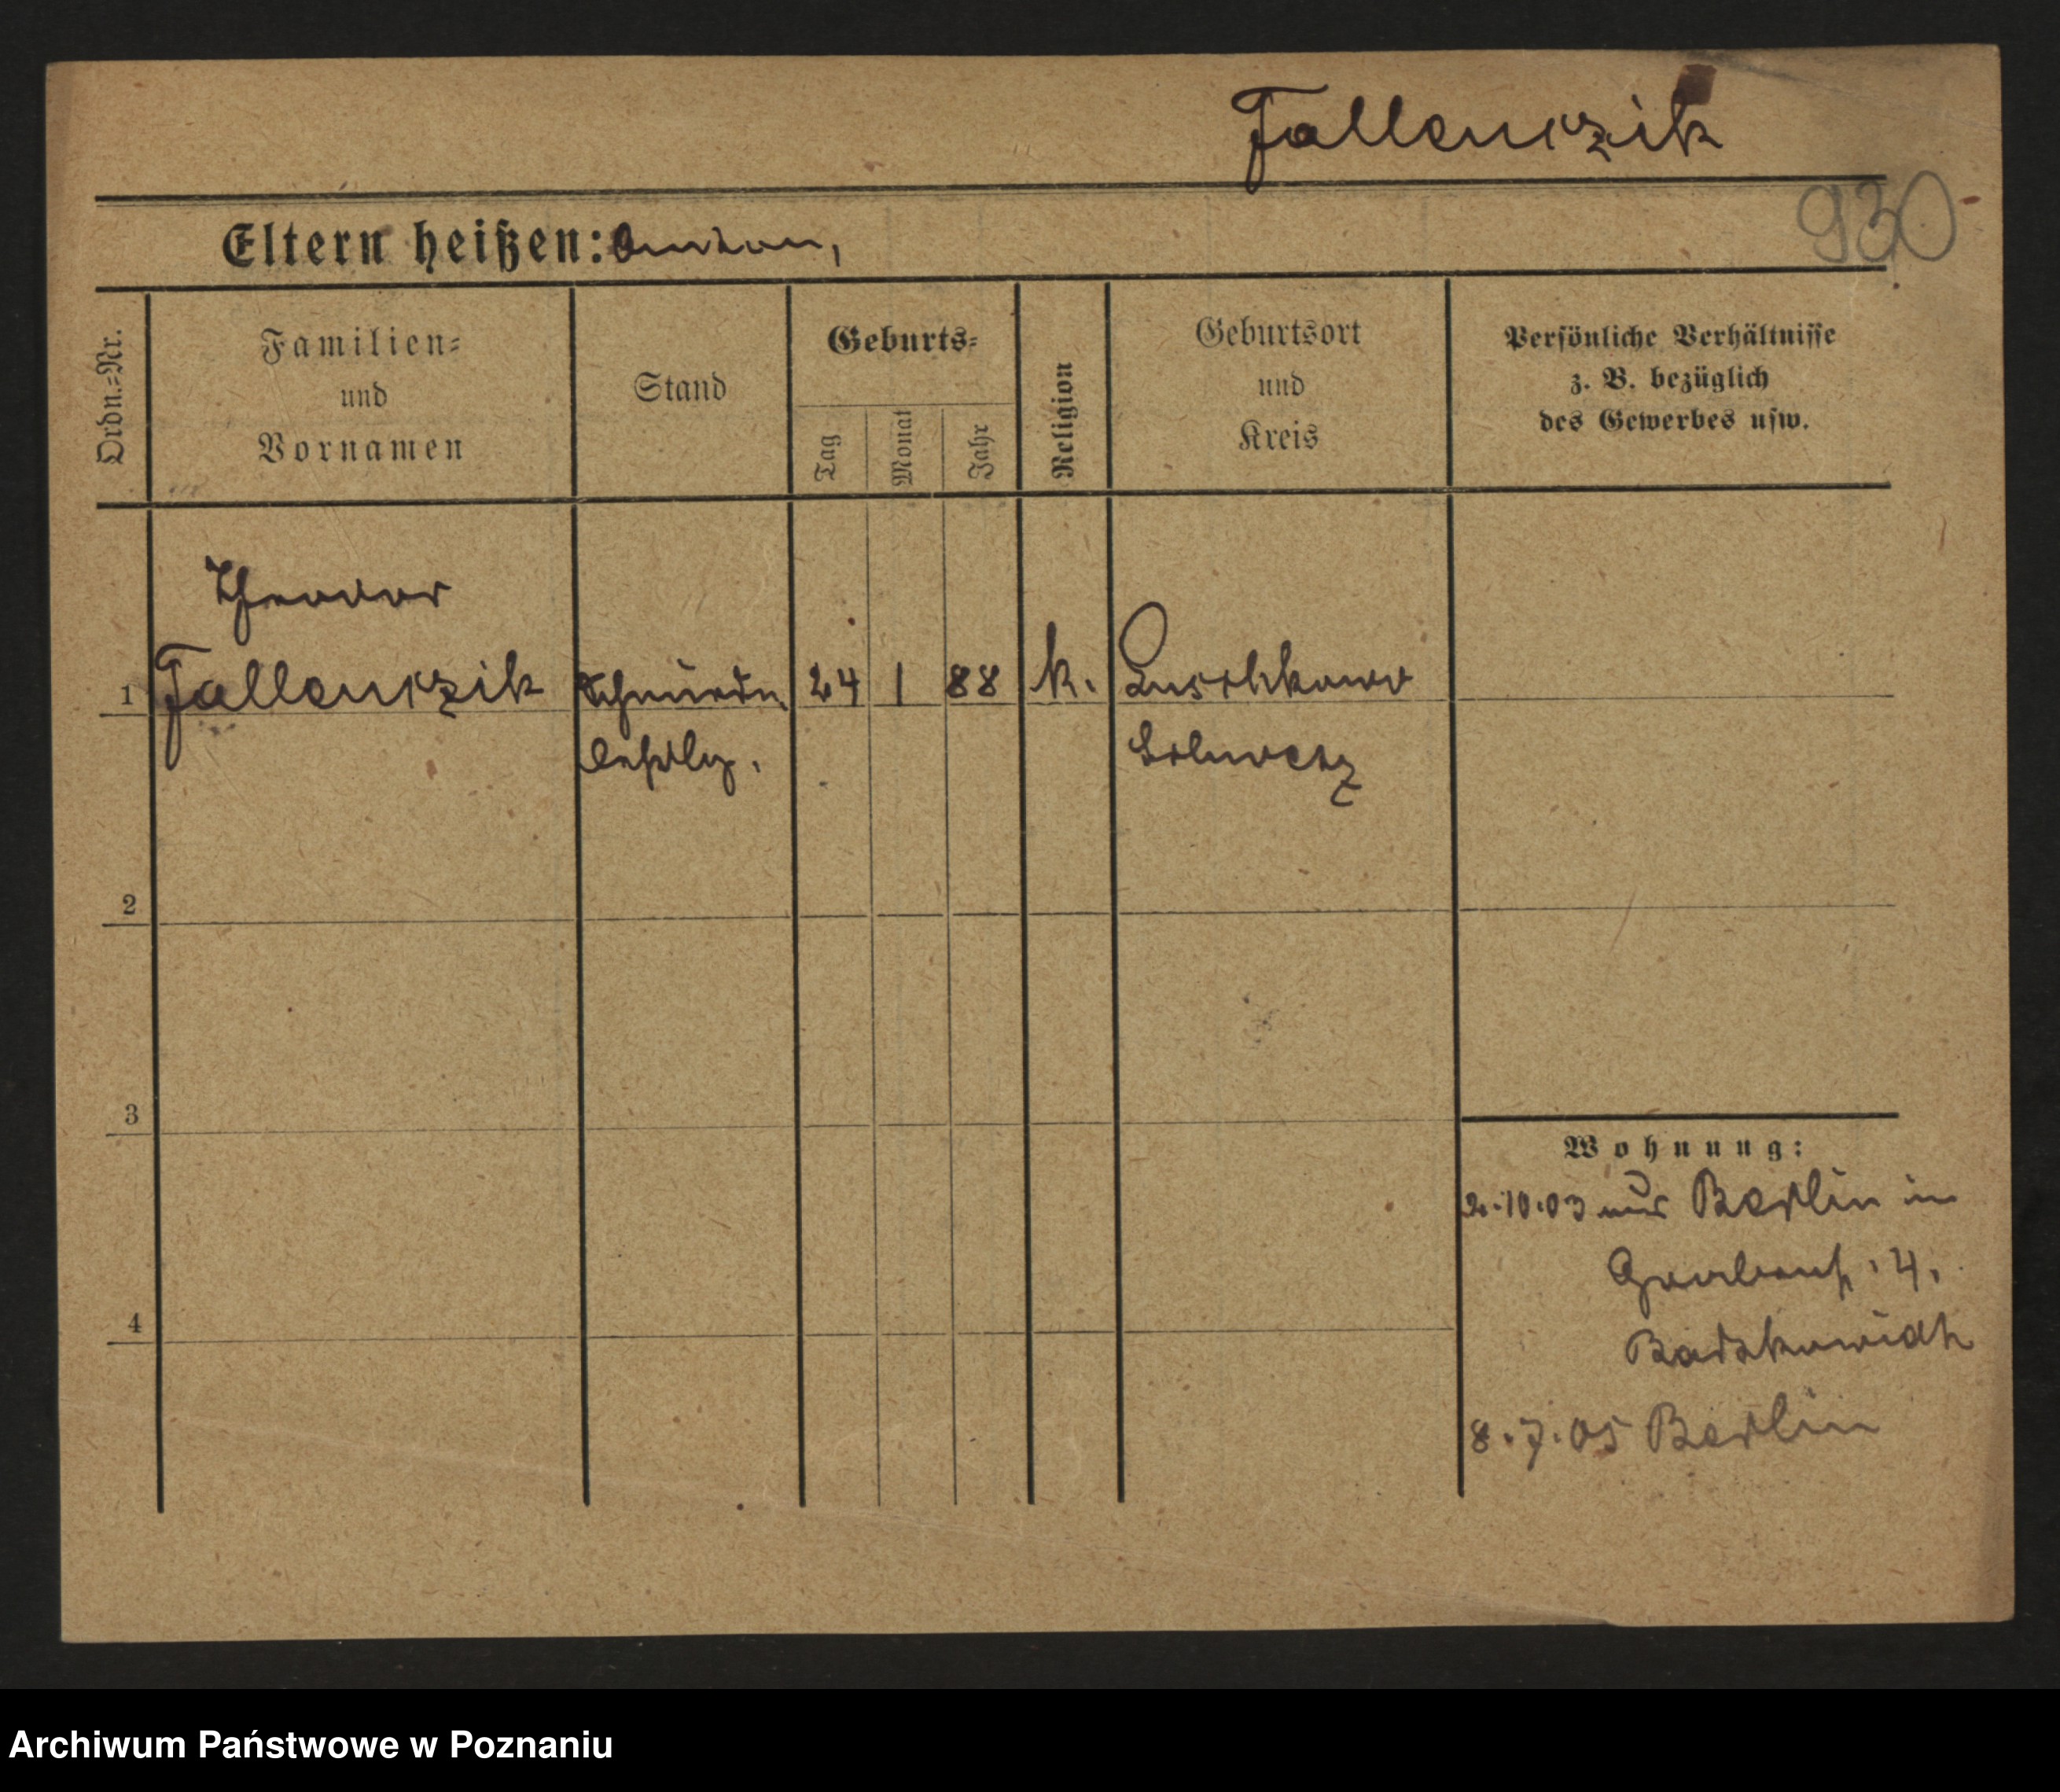 Fallenczik
930
Eltern heißen: Anton,
Ordn.=Nr.
Familien=
und
Vornamen
Stand
Geburts=
Tag
Monat
Jahr
Religion
Geburtsort
und
Kreis
Persönliche Verhältnisse
z. B. bezüglich
des Gewerbes usw.
Theodor
1 Fallenczik 24 1 88 k. Luschkowo
Schwetz
2
3
4
Wohnung:
2.10.03 aus Berlin in
4.
8.7.05 Berlin
Archiwum Państwowe w Poznaniu